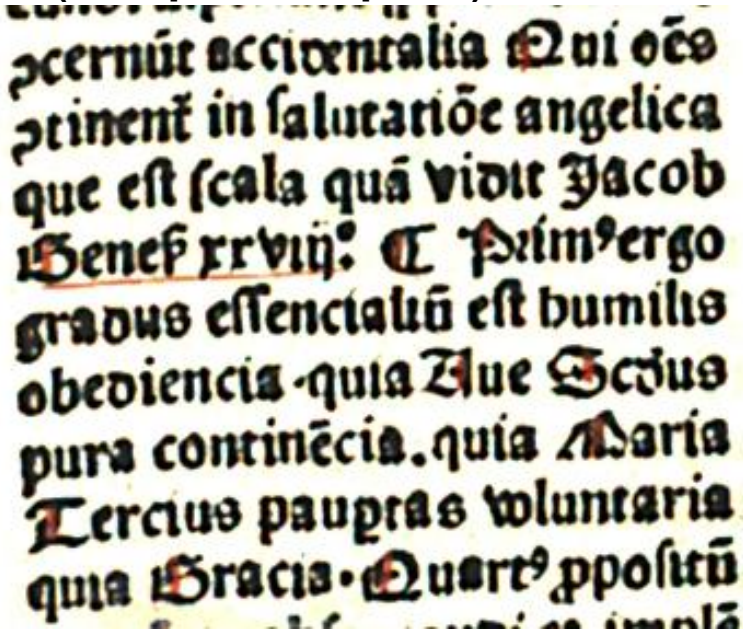 ꝯcernūt accidentalia Qui oēs
ꝯtinent᷑ in ſalutatiōe angelica
que eſt ſcala quā vidit Jacob
Geneſ xxviij.° ¶ Prim⁹ ergo
gradus eſſencialiū eſt humilis
obediencia ·quia Aue Scd̄us
pura continēcia. quia Maria
Tercius paup̱tas voluntaria
quia Gracia· Quart⁹ ꝓpoſitū